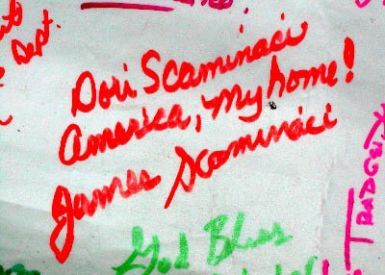 Dept.
Dori Scaminaci
America, My home!
James Scaminaci
God Bless